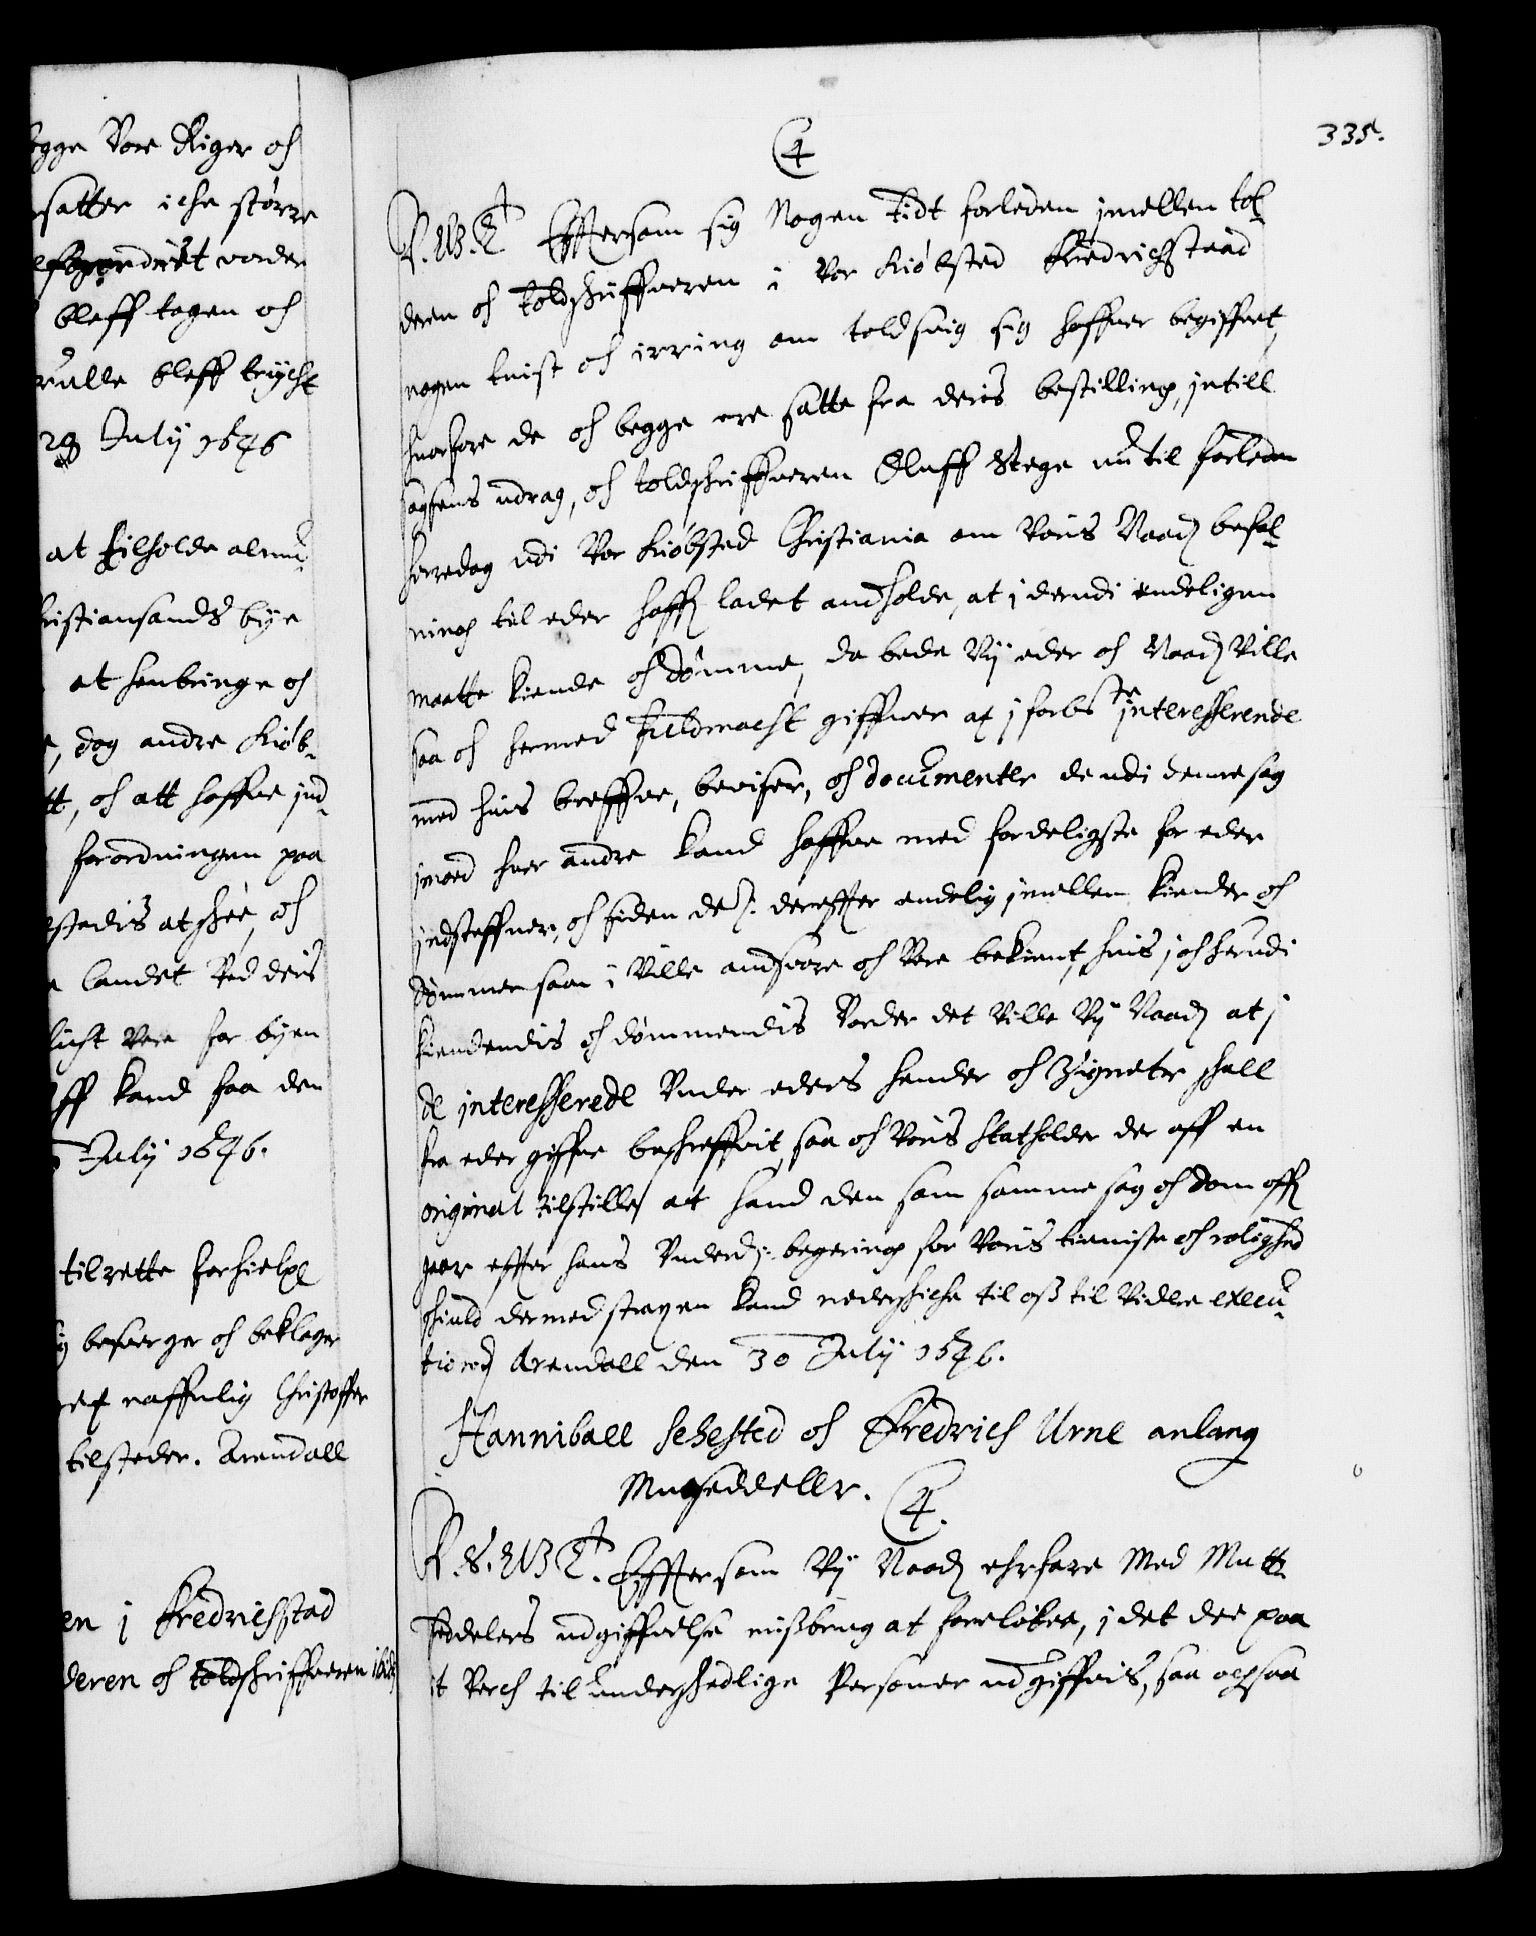 egge Vore Riger och
rsatter iche større
bleff tagen och
rulle bleff trycht
29 July 1646
at tilholde almu-
hristiansands bye
at henbringe och
e, dog andre Kiøb-
tt, och att haffue ind-
forordningen paa
stedis at skee, och
e landet Ved deris
licht Vere for byen
ff kand faa den
July 1646.
tilrette forhielpe
ig besuerger och beklager
ret naffnlig Christoffer
tilsteder. Arendall
en i Fredrichstad
deren och toldskriffueren ibid
335.
4
V. G. T. Efftersom sig Nogen tidt forleden imellem tol-
deren och toldskriffueren i Vor Kiøbsted Friedrichstaad
nogen tuist och irring om toldsuig sig haffuer begiffuet,
huorfore de och begge ere satte fra deris bestilling, intill
sagsens udrag, och toldskriffueren Oluff Stege nu til forleden
herredag udi Vor Kiøbsted Christiania om Voris Naad: befal-
ning til eder haffr ladet andholde, at i derudi endeligen
maatte kiende och dømme, da bede Vy eder och Naad: Ville
saa och hermed fuldmacht giffuer at i forbte interesserende
med huis breffue, beviser, och documenter de udi denne sag
imod huer andre kand haffue med fordeligste for eder
indsteffner, och siden de s: dereffter endelig imellem kiender och
dømmer som i Ville andsuare och Vere bekient, huis i och herudi
kiendendis och dømmendis Vorder det Ville Vy Naad: at i
de interesserede Under eders hender och Zigneter skall
fra eder giffue beskreffuit, saa och Voris Statholder der aff en
original tilstilles at hand den som samme sag och dom aff
gaar effter hans Underd: begering for Voris tieniste och rolighed
skiuld dermed stragen kand nederskiche til oss til Videre execu-
tion: Arendall den 30 July 1646.
Hanniball Sehested och Fredrich Urne anlang
Mutseddeller. 4.
V. S. G. T. Efftersom Vy Naad: ehrfare Med Mutt-
seddelers udgiffuelse missbrug at foreløbe, i det der paa
it Verch til underskedlige Personer udgiffuis, saa ochsaa